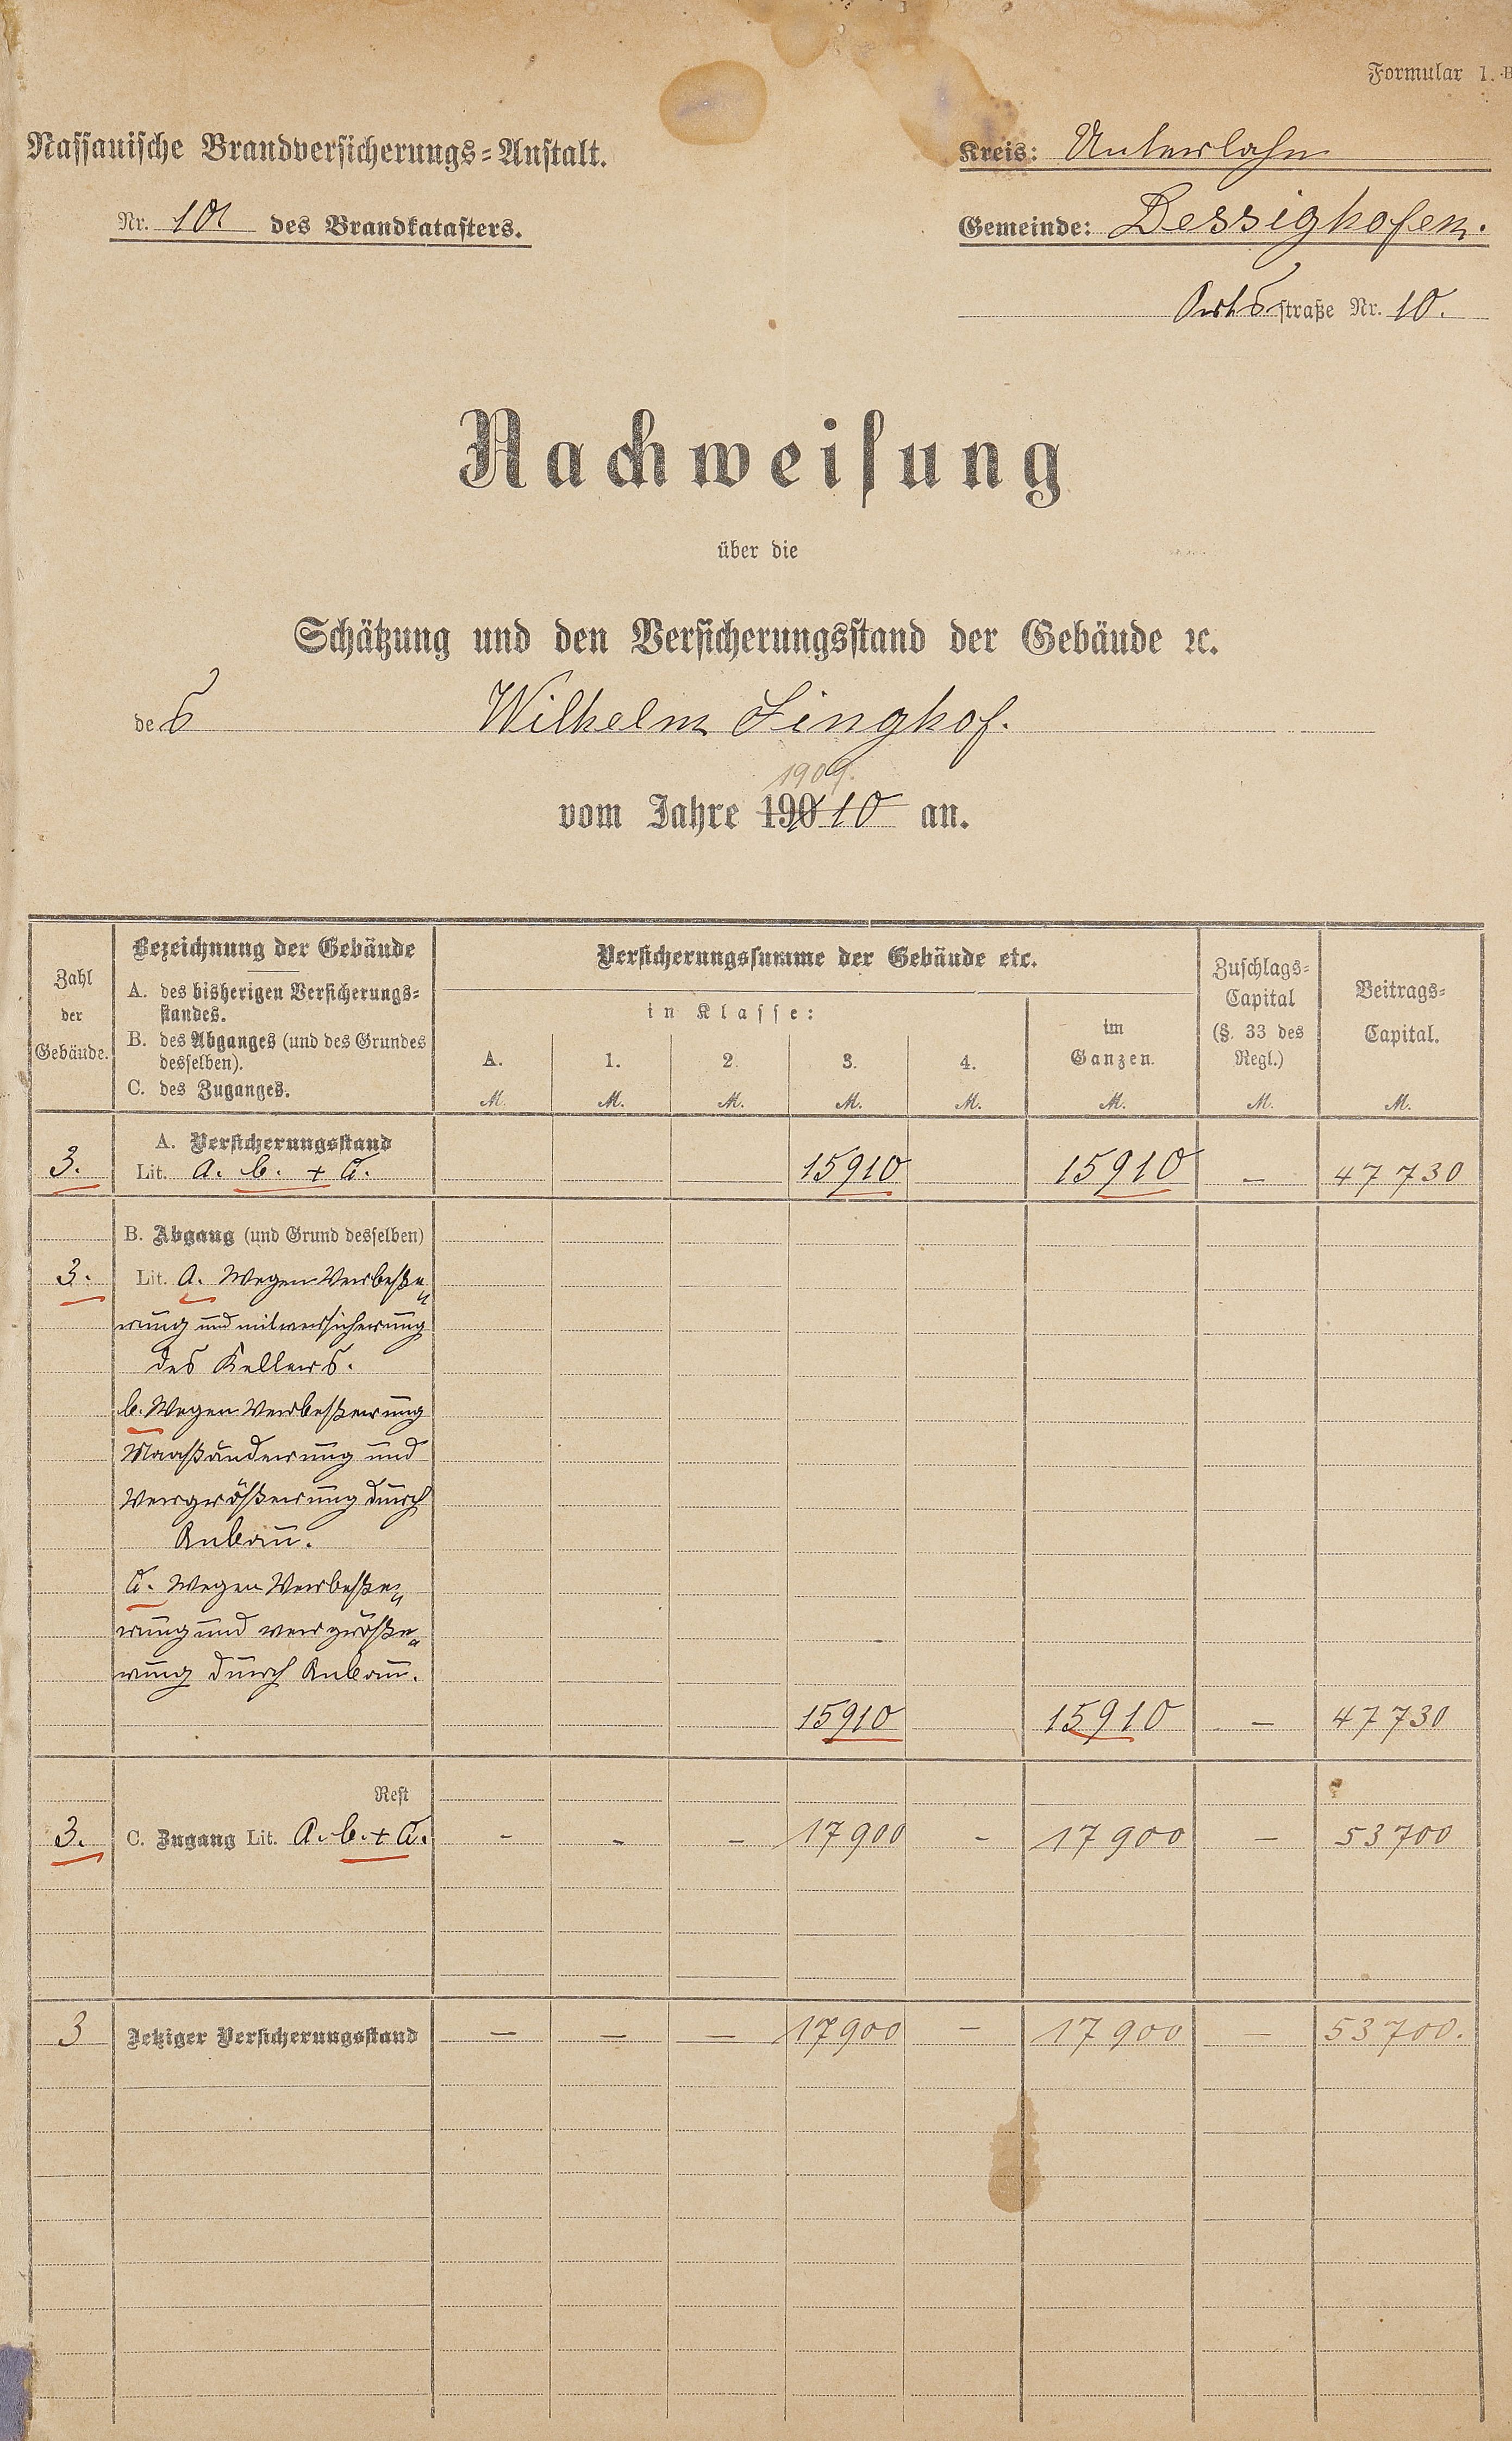 Formular 1. B
Nassauische Brandversicherungs=Anstalt.
Kreis: Unterlahn
Nr. 10 des Brandkatasters.
Gemeinde: Dessighofen.
Orts straße Nr. 10.
Nachweisung
über die
Schätzung und den Versicherungsstand der Gebäude ꝛc.
des Wilhelm Linghof.
1909.
vom Jahre 190 10 an.
Zahl der Gebäude.
Bezeichnung der Gebäude
A. des bisherigen Versicherungs=
standes.
B. des Abganges (und des Grundes
desselben).
C. des Zuganges.
Versicherungssumme der Gebäude etc.
in Klasse:
A. 1. 2. 3. 4.
im
Ganzen.
Zuschlags=
Capital
(§. 33 des
Regl.)
Beitrags=
Capital.
M. M. M. M. M. M. M. M.
A. Versicherungsstand
3. Lit. a. b. + d. 15910 15910 – 47730
B. Abgang (und Grund desselben)
3. Lit. a. Wegen Verbeße„
rung und mitversicherung
des Kellers.
b. Wegen Verbeßerung
Maaßänderung und
Vergrößerung durch
Anbau.
d. Wegen Verbeße„
rung und vergröße„
rung durch Anbau.
15910 15910 – 47730
Rest
3. C. Zugang Lit. a. b. + d. - - - 17900 - 17900 – 53700
3 Jetziger Versicherungsstand – – – 17900 – 17900 – 53700.